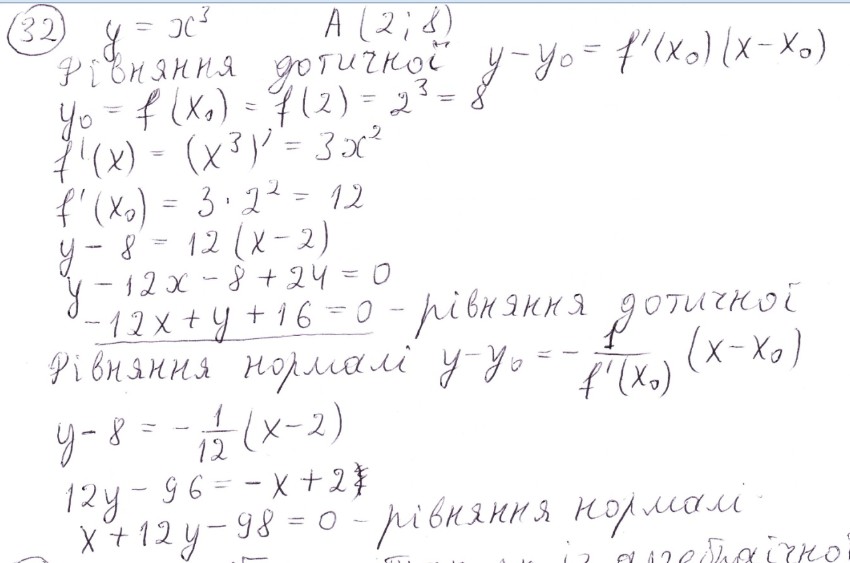 32 y = x³ A (2; 8)
Рівняння дотичної y – y₀ = f'(x₀)(x – x₀)
y₀ = f(x₀) = f(2) = 2³ = 8
f'(x) = (x³)' = 3x²
f'(x₀) = 3 · 2² = 12
y – 8 = 12(x – 2)
y – 12x – 8 + 24 = 0
–12x + y + 16 = 0 – рівняння дотичної
Рівняння нормалі y – y₀ = – 1/f'(x₀) (x – x₀)
y – 8 = – 1/12 (x – 2)
12y – 96 = –x + 2
x + 12y – 98 = 0 – рівняння нормалі